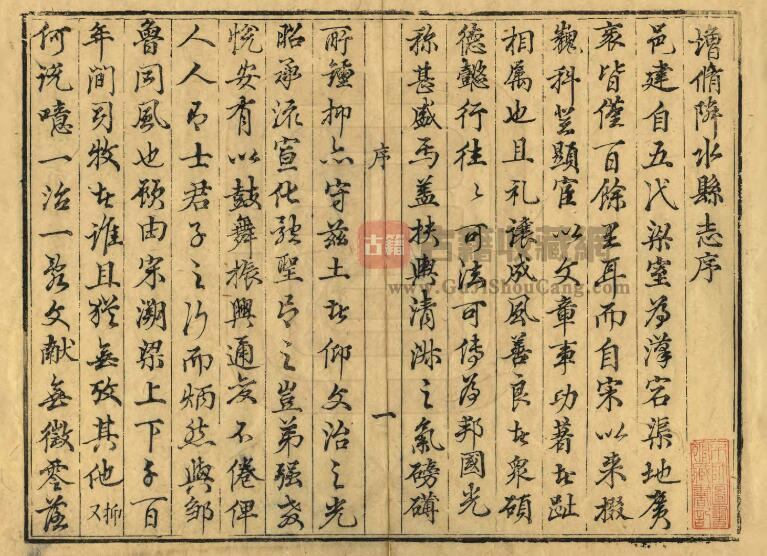 增脩隣水縣志序
邑建自五代梁室為漢宕渠地廣
袤皆僅百餘里耳而自宋以來掇
巍科登顯宦以文章事功著者趾
相屬也且礼讓成風善良者衆碩
德懿行往〻可法可傳為邦國光
称甚盛焉蓋扶輿清淑之氣磅礴
序
一
所鍾抑亦守兹土者仰文治之光
昭承流宣化弦聖
之豈弟强教
悅安有以鼓舞振興通變不倦俾
人人乃士君子之行而炳然與鄒
魯同風也顧由宋溯梁上下千百
年間司牧者誰且猶無攷其他抑又
何說噫一治一亂文献無徵零落
古籍
古籍收藏網
www.GuJiShouCang.com